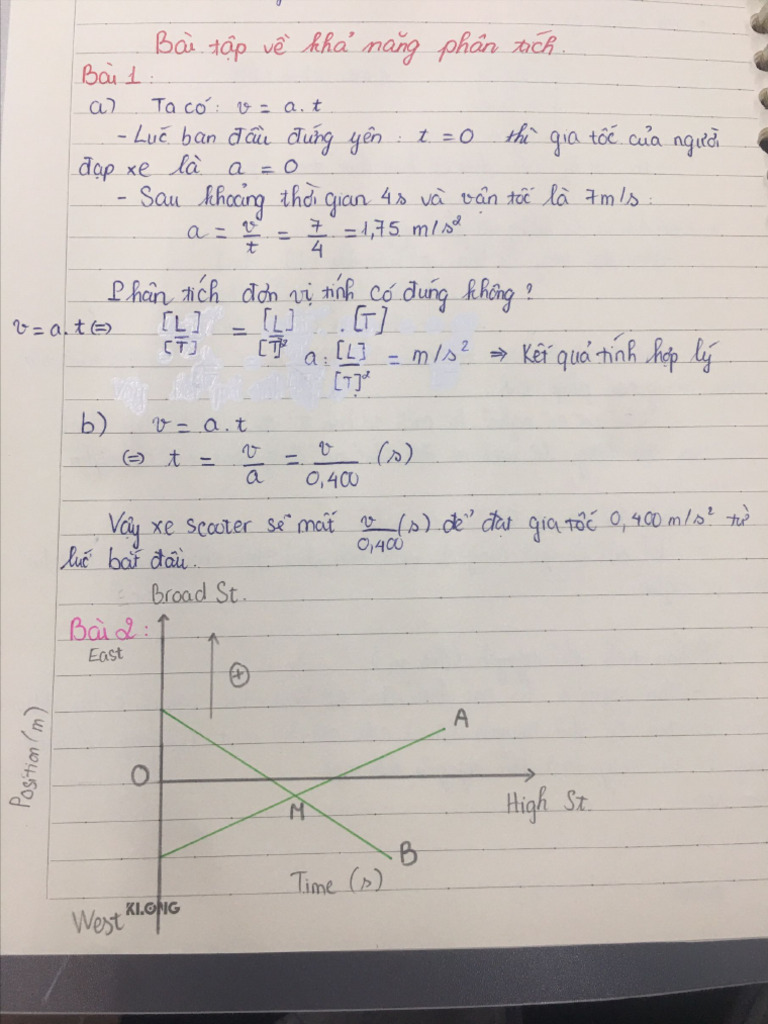 Bài tập về khả năng phân tích.
Bài 1:
a) Ta có: v = a.t
- Lúc ban đầu đứng yên: t = 0 thì gia tốc của người
đạp xe là a = 0
- Sau khoảng thời gian 4s và vận tốc là 7m/s:
a = v/t = 7/4 = 1,75 m/s²
Phân tích đơn vị tính có đúng không?
v = a.t (=) [L]/[T] = [L]/[T]² . [T]
a: [L]/[T]² = m/s² => Kết quả tính hợp lý
b) v = a.t
(=) t = v/a = v/0,400 (s)
Vậy xe scooter sẽ mất v/0,400 (s) để đạt gia tốc 0,400 m/s² từ
lúc bắt đầu.
Broad St.
Bài 2:
East
+
Position (m)
A
O
M
High St.
B
Time (s)
West
KLONG